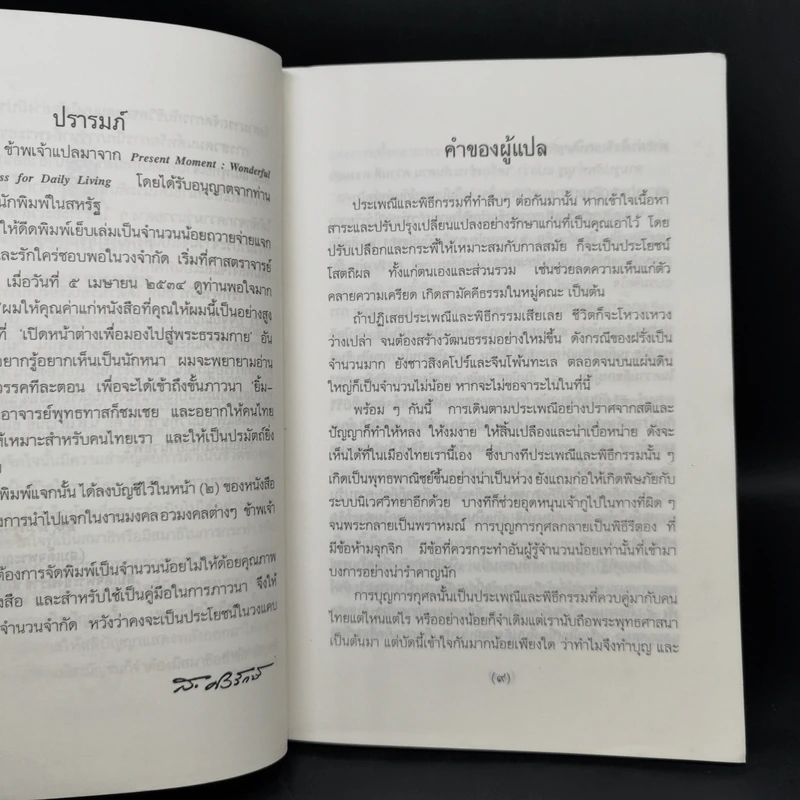 ปรารมภ์
ข้าพเจ้าแปลมาจาก Present Moment : Wonderful
ss for Daily Living โดยได้รับอนุญาตจากท่าน
นักพิมพ์ในสหรัฐ
ให้ดีดพิมพ์เย็บเล่มเป็นจำนวนน้อยถวายจ่ายแจก
และรักใคร่ชอบพอในวงจำกัด เริ่มที่ศาสตราจารย์
เมื่อวันที่ ๕ เมษายน ๒๕๓๔ ดูท่านพอใจมาก
"ผมให้คุณค่าแก่หนังสือที่คุณให้ผมนี้เป็นอย่างสูง
ที่ 'เปิดหน้าต่างเพื่อมองไปสู่พระธรรมกาย' อัน
อยากรู้อยากเห็นเป็นนักหนา ผมจะพยายามอ่าน
วรรคทีละตอน เพื่อจะได้เข้าถึงขั้นภาวนา 'ยิ้ม-
อาจารย์พุทธทาสก็ชมเชย และอยากให้คนไทย
ให้เหมาะสำหรับคนไทยเรา และให้เป็นปรมัตถ์ยิ่ง
พิมพ์แจกนั้น ได้ลงบัญชีไว้ในหน้า (๒) ของหนังสือ
งการนำไปแจกในงานมงคล อวมงคลต่างๆ ข้าพเจ้า
ต้องการจัดพิมพ์เป็นจำนวนน้อยไม่ให้ด้อยคุณภาพ
งสือ และสำหรับใช้เป็นคู่มือในการภาวนา จึงให้
จำนวนจำกัด หวังว่าคงจะเป็นประโยชน์ในวงแคบ
ส. ศิวรักษ์
คำของผู้แปล
ประเพณีและพิธีกรรมที่ทำสืบๆ ต่อกันมานั้น หากเข้าใจเนื้อหา
สาระและปรับปรุงเปลี่ยนแปลงอย่างรักษาแก่นที่เป็นคุณเอาไว้ โดย
ปรับเปลือกและกระพี้ให้เหมาะสมกับกาลสมัย ก็จะเป็นประโยชน์
โสตถิผล ทั้งแก่ตนเองและส่วนรวม เช่นช่วยลดความเห็นแก่ตัว
คลายความเครียด เกิดสามัคคีธรรมในหมู่คณะ เป็นต้น
ถ้าปฏิเสธประเพณีและพิธีกรรมเสียเลย ชีวิตก็จะโหวงเหวง
ว่างเปล่า จนต้องสร้างวัฒนธรรมอย่างใหม่ขึ้น ดังกรณีของฝรั่งเป็น
จำนวนมาก ยังชาวสิงคโปร์และจีนโพ้นทะเล ตลอดจนบนแผ่นดิน
ใหญ่ก็เป็นจำนวนไม่น้อย หากจะไม่ขอจาระไนในที่นี้
พร้อม ๆ กันนี้ การเดินตามประเพณีอย่างปราศจากสติและ
ปัญญาก็ทำให้หลง ให้งมงาย ให้สิ้นเปลืองและน่าเบื่อหน่าย ดังจะ
เห็นได้ที่ในเมืองไทยเรานี้เอง ซึ่งบางทีประเพณีและพิธีกรรมนั้น ๆ
เกิดเป็นพุทธพาณิชย์ขึ้นอย่างน่าเป็นห่วง ยังแถมก่อให้เกิดพิษภัยกับ
ระบบนิเวศวิทยาอีกด้วย บางทีก็ช่วยอุดหนุนเจ้ากูไปในทางที่ผิด ๆ
จนพระกลายเป็นพราหมณ์ การบุญการกุศลกลายเป็นพิธีรีตอง ที่
มีข้อห้ามจุกจิก มีข้อที่ควรกระทำอันผู้รู้จำนวนน้อยเท่านั้นที่เข้ามา
บงการอย่างน่ารำคาญนัก
การบุญการกุศลนั้นเป็นประเพณีและพิธีกรรมที่ควบคู่มากับคน
ไทยแต่ไหนแต่ไร หรืออย่างน้อยก็จำเดิมแต่เรานับถือพระพุทธศาสนา
เป็นต้นมา แต่บัดนี้เข้าใจกันมากน้อยเพียงใด ว่าทำไมจึงทำบุญ และ
(๙)